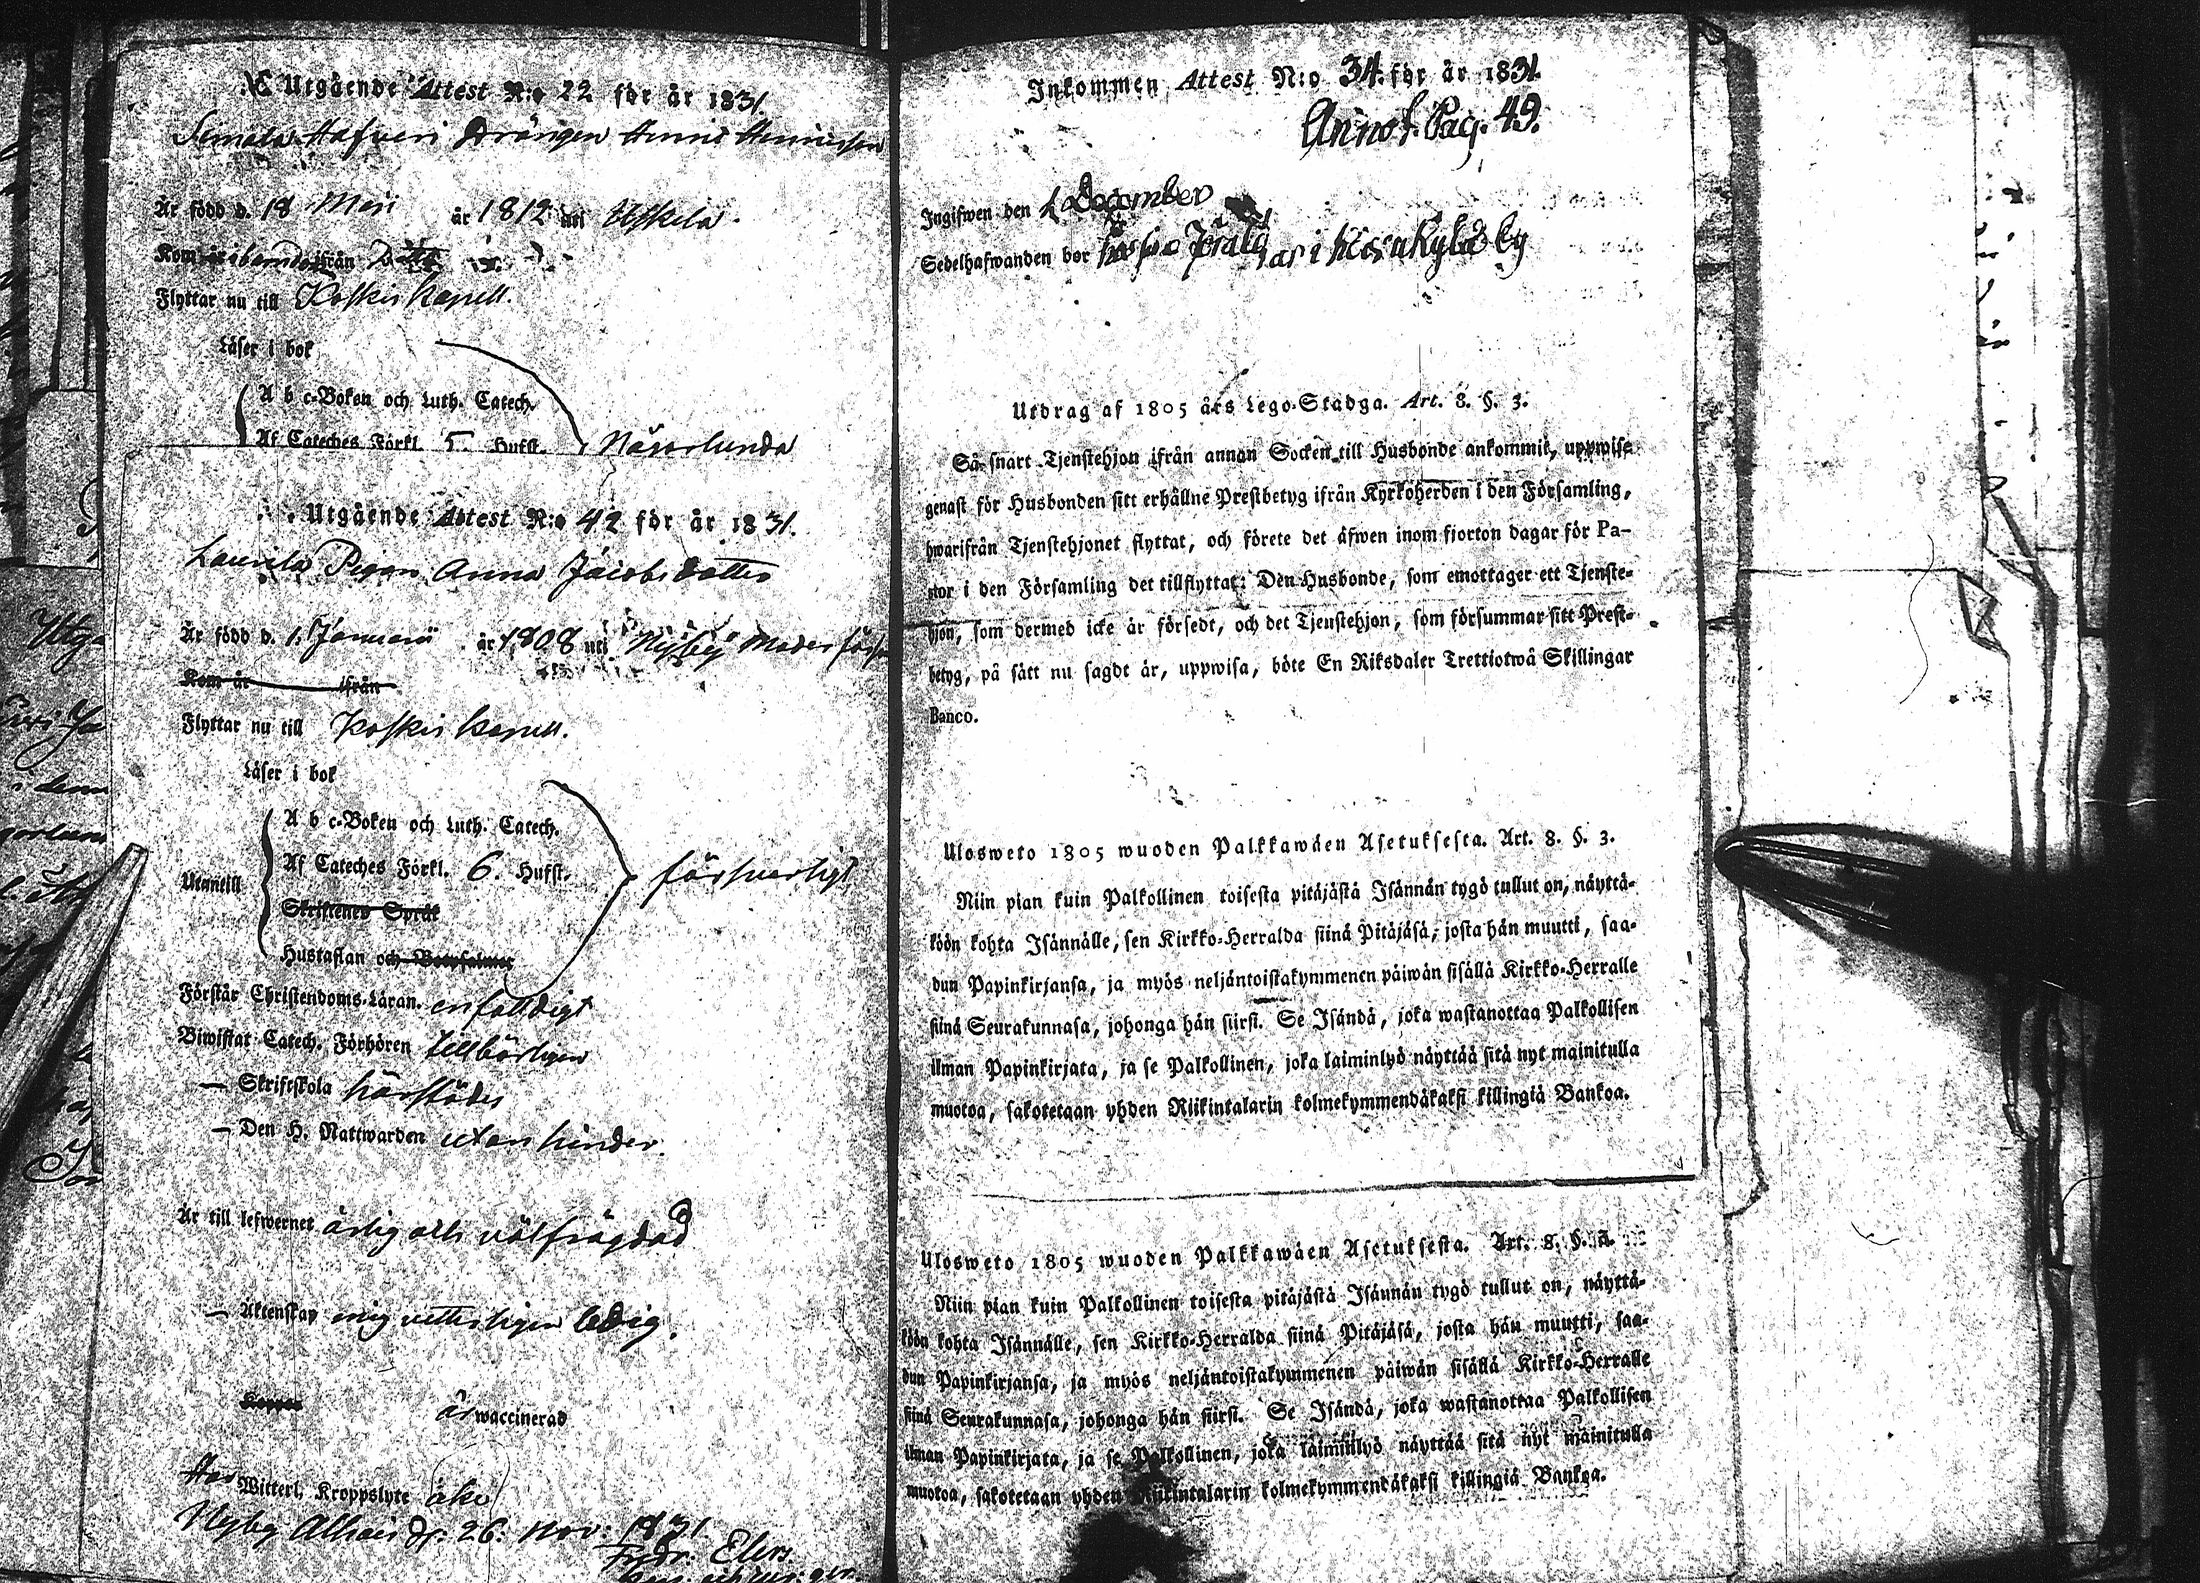 Utgående Attest N:o 22 för år 1831.
Drängen
Är född d. 18 Maji år 1812 uti Uskela.
Kom ifrån
Flyttar nu till Koskis Kapell.
Läser i bok
A b c-Boken och Luth. Catech.
Af Cateches Förkl. 5. Hufst. Någorlunda
Utgående Attest N:o 42 för år 1831.
Laurila Pigan Anna Jacobsdotter
Är född d. 1. Januarii år 1808 uti Nyby Moder
Kom år ifrån
Flyttar nu till Koskis Kapell.
Läser i bok
A b c-Boken och Luth. Catech.
Utantill Af Cateches Förkl. 6. Hufst. försvarligt
Skriftenes Språk
Hustaflan och
Förstår Christendoms-Läran. enfaldigt
Biwistat Catech. Förhören tillbörligen
— Skriftskola härstädes
— Den H. Nattwarden utan hinder.
Är till lefwernet ärlig och välfrägdad
— Äktenskap mig vetterligen ledig.
Koppor är waccinerad
Har Witterl. Kroppslyte icke
Nyby 26. Nov: 1831
Inkommen Attest N:o 34. för år 1831.
Annot. Pag. 49.
Ingifwen den 1 December
Sedelhafwanden bor i by
Utdrag af 1805 års Lego-Stadga. Art. 8. §. 3.
Så snart Tjenstehjon ifrån annan Socken till Husbonde ankommit, uppwise
genast för Husbonden sitt erhållne Prestbetyg ifrån Kyrkoherden i den Församling,
hwarifrån Tjenstehjonet flyttat, och förete det äfwen inom fjorton dagar för Pa-
stor i den Församling det tillflyttat: Den Husbonde, som emottager ett Tjenste-
hjon, som dermed icke är försedt, och det Tjenstehjon, som försummar sitt Prest-
betyg, på sätt nu sagdt är, uppwisa, böte En Riksdaler Trettiotwå Skillingar
Banco.
Ulosweto 1805 wuoden Palkkawäen Asetuksesta. Art. 8. §. 3.
Niin pian kuin Palkollinen toisesta pitäjästä Isännän tygö tullut on, näyttä-
köön kohta Isännälle, sen Kirkko-Herralda siinä Pitäjäsä, josta hän muutti, saa-
dun Papinkirjansa, ja myös neljäntoistakymmenen päiwän sisällä Kirkko-Herralle
siinä Seurakunnasa, johonga hän siirsi. Se Isändä, joka wastanottaa Palkollisen
ilman Papinkirjata, ja se Palkollinen, joka laiminlyö näyttää sitä nyt mainitulla
muotoa, sakotetaan yhden Riikintalarin kolmekymmendäkaksi killingiä Bankoa.
Ulosweto 1805 wuoden Palkkawäen Asetuksesta. Art. 8. §. 3.
Niin pian kuin Palkollinen toisesta pitäjästä Isännän tygö tullut on, näyttä-
köön kohta Isännälle, sen Kirkko-Herralda siinä Pitäjäsä, josta hän muutti, saa-
dun Papinkirjansa, ja myös neljäntoistakymmenen päiwän sisällä Kirkko-Herralle
siinä Seurakunnasa, johonga hän siirsi. Se Isändä, joka wastanottaa Palkollisen
ilman Papinkirjata, ja se Palkollinen, joka laiminlyö näyttää sitä nyt mainitulla
muotoa, sakotetaan yhden Riikintalarin kolmekymmendäkaksi killingiä Bankoa.